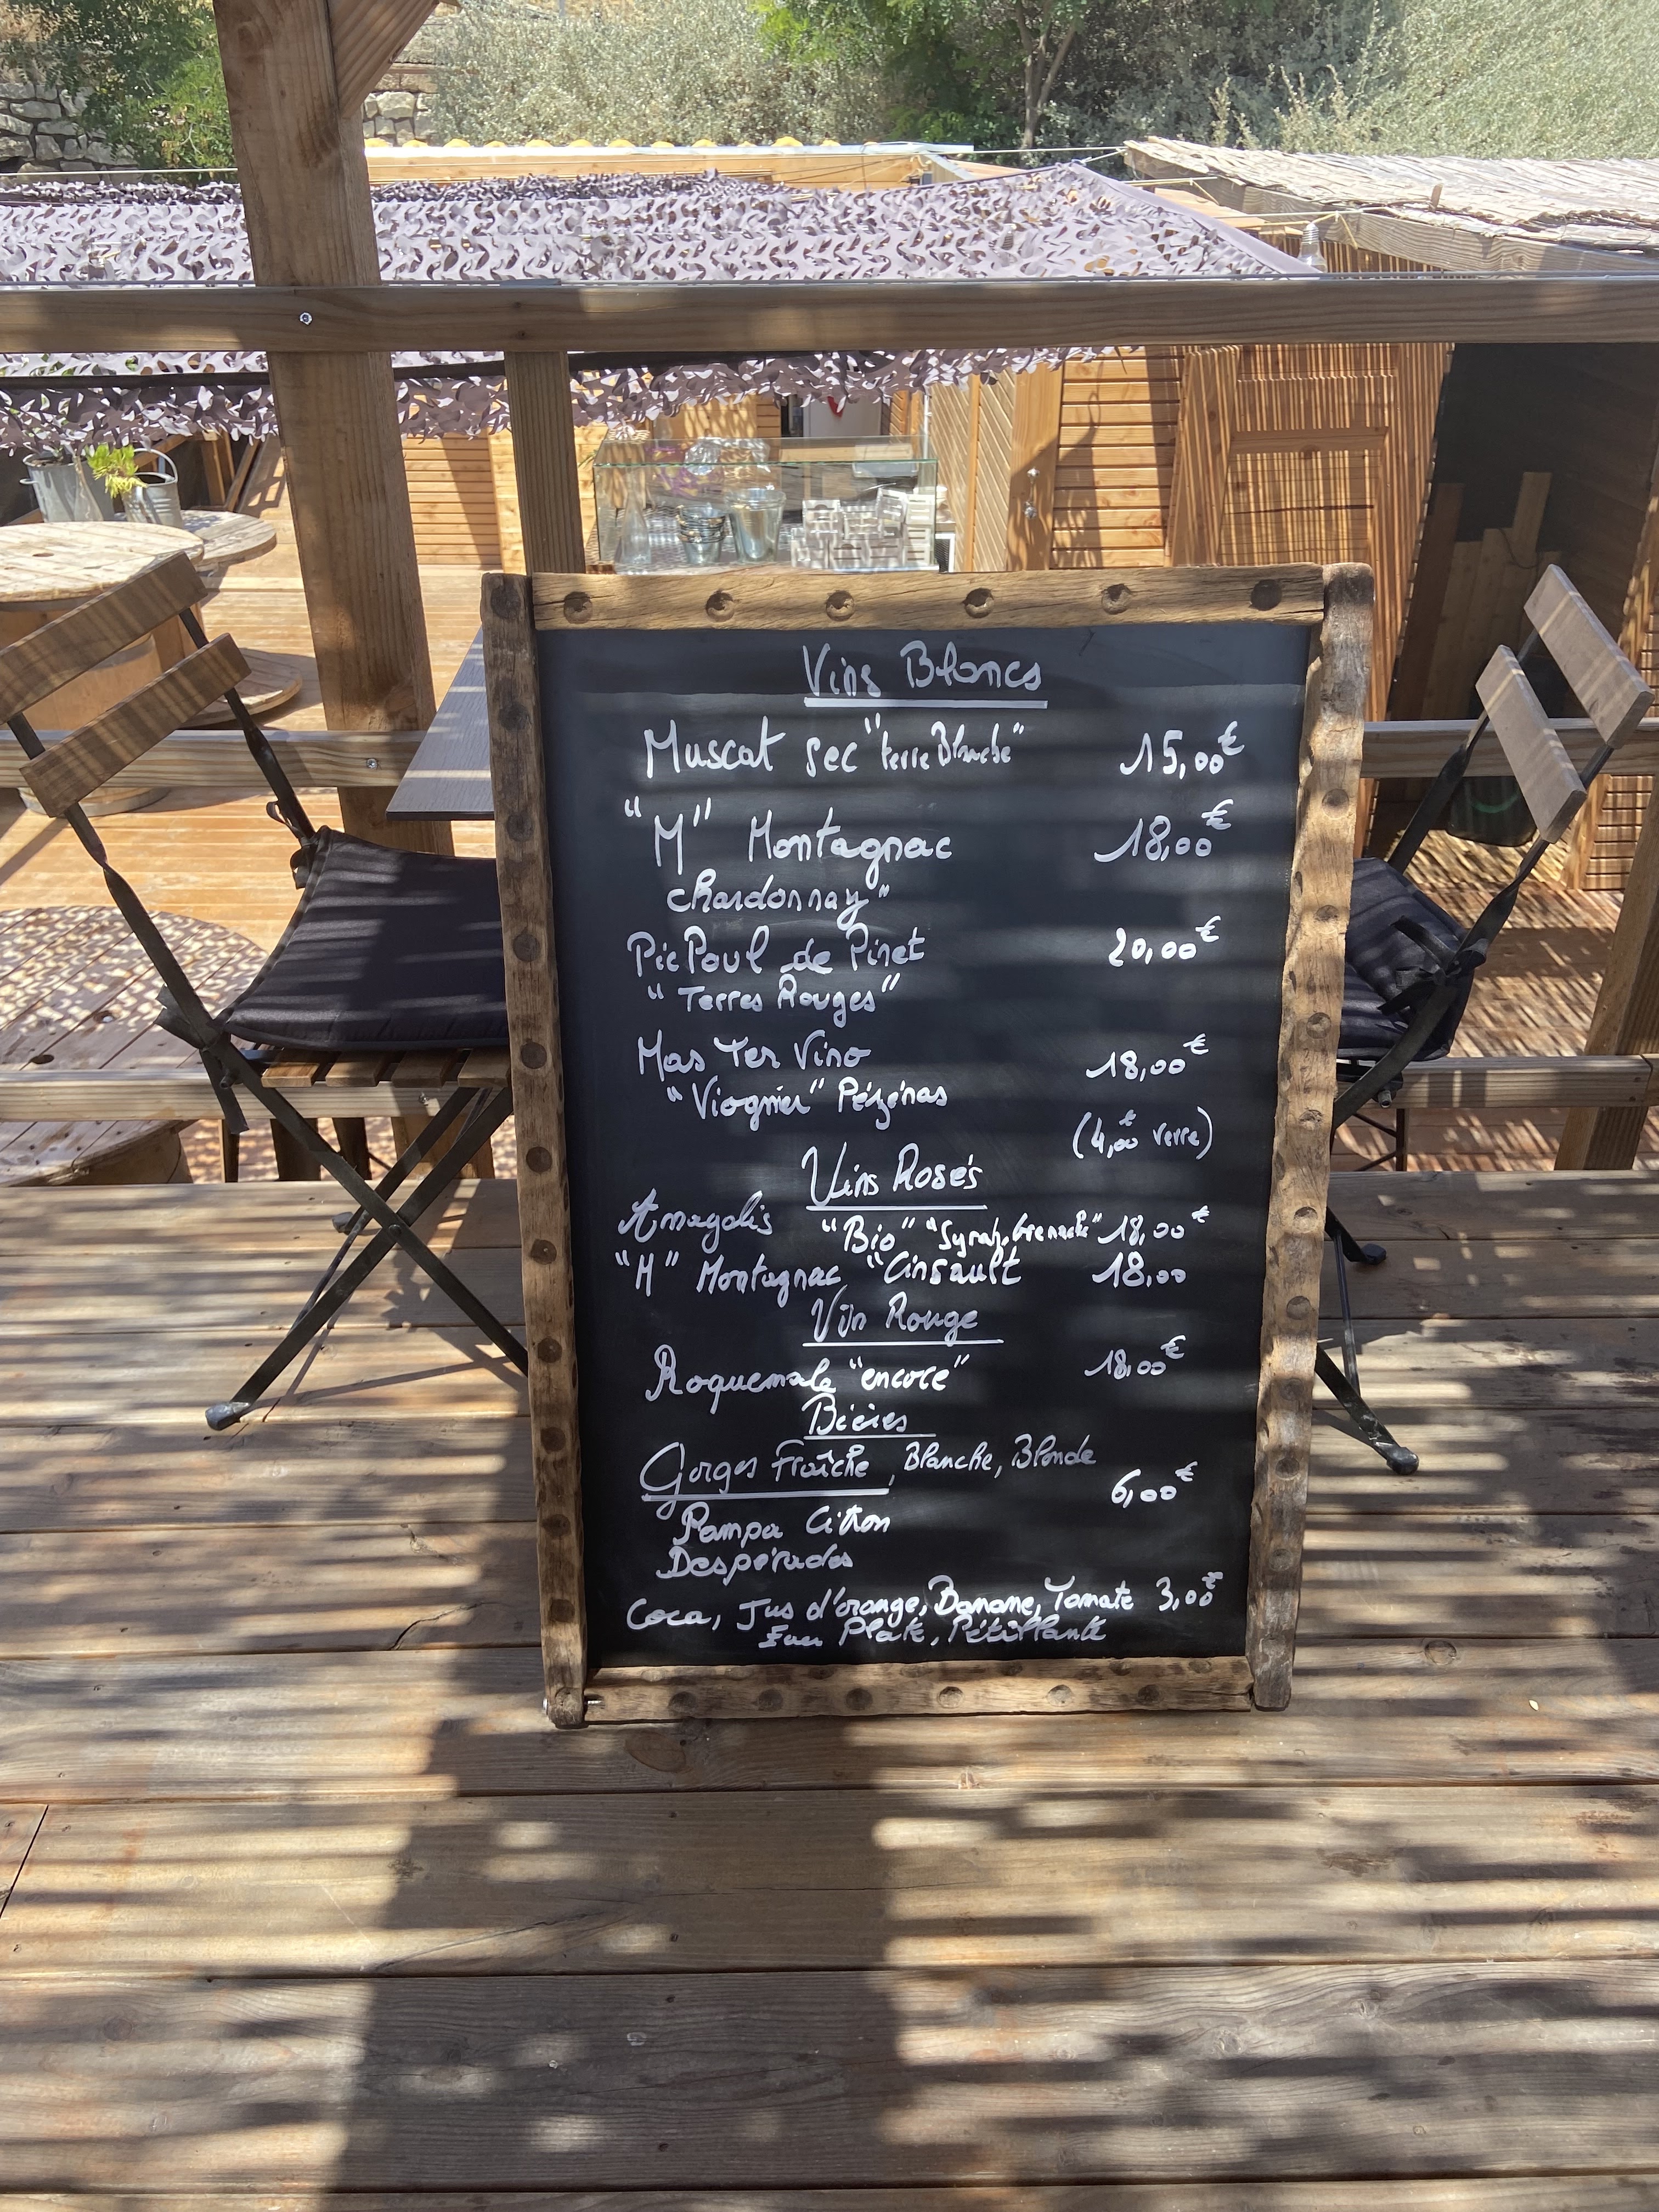 Vins Blancs
Muscat sec "terre Blanche" 15,00€
"M" Montagnac 18,00€
Chardonnay"
PicPoul de Pinet 20,00€
"Terres Rouges"
Mas Ter Vino 18,00€
"Viognier" Pézénas
(4,00€ verre)
Vins Rosés
Amagalis "Bio" "Syrah, Grenache" 18,00€
"M" Montagnac "Cinsault 18,00
Vin Rouge
Roquemale "encore" 18,00€
Bières
Gorges Fraîche, Blanche, Blonde
6,00€
Pampa Citron
Despérados
Coca, Jus d'orange, Banane, Tomate 3,00€
Eau Plate, Pétillante